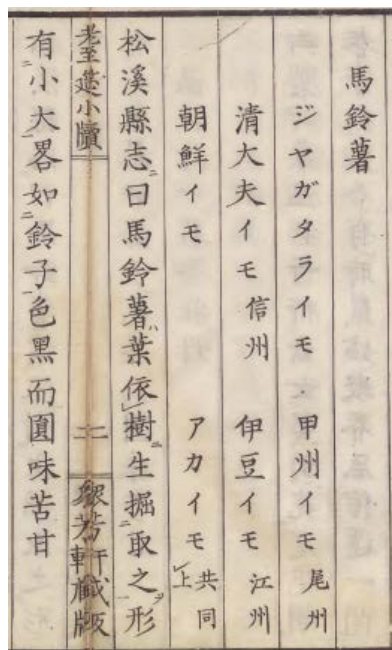 馬鈴薯
ジヤガタライモ・甲州イモ尾州
清大夫イモ信州 伊豆イモ江州
朝鮮イモ アカイモ共同上
松溪縣志ニ曰馬鈴薯ハ葉依樹ニ生掘取之形
耋筵小牘 二 芳軒藏版
有小大畧如鈴子色黑而圓味苦甘